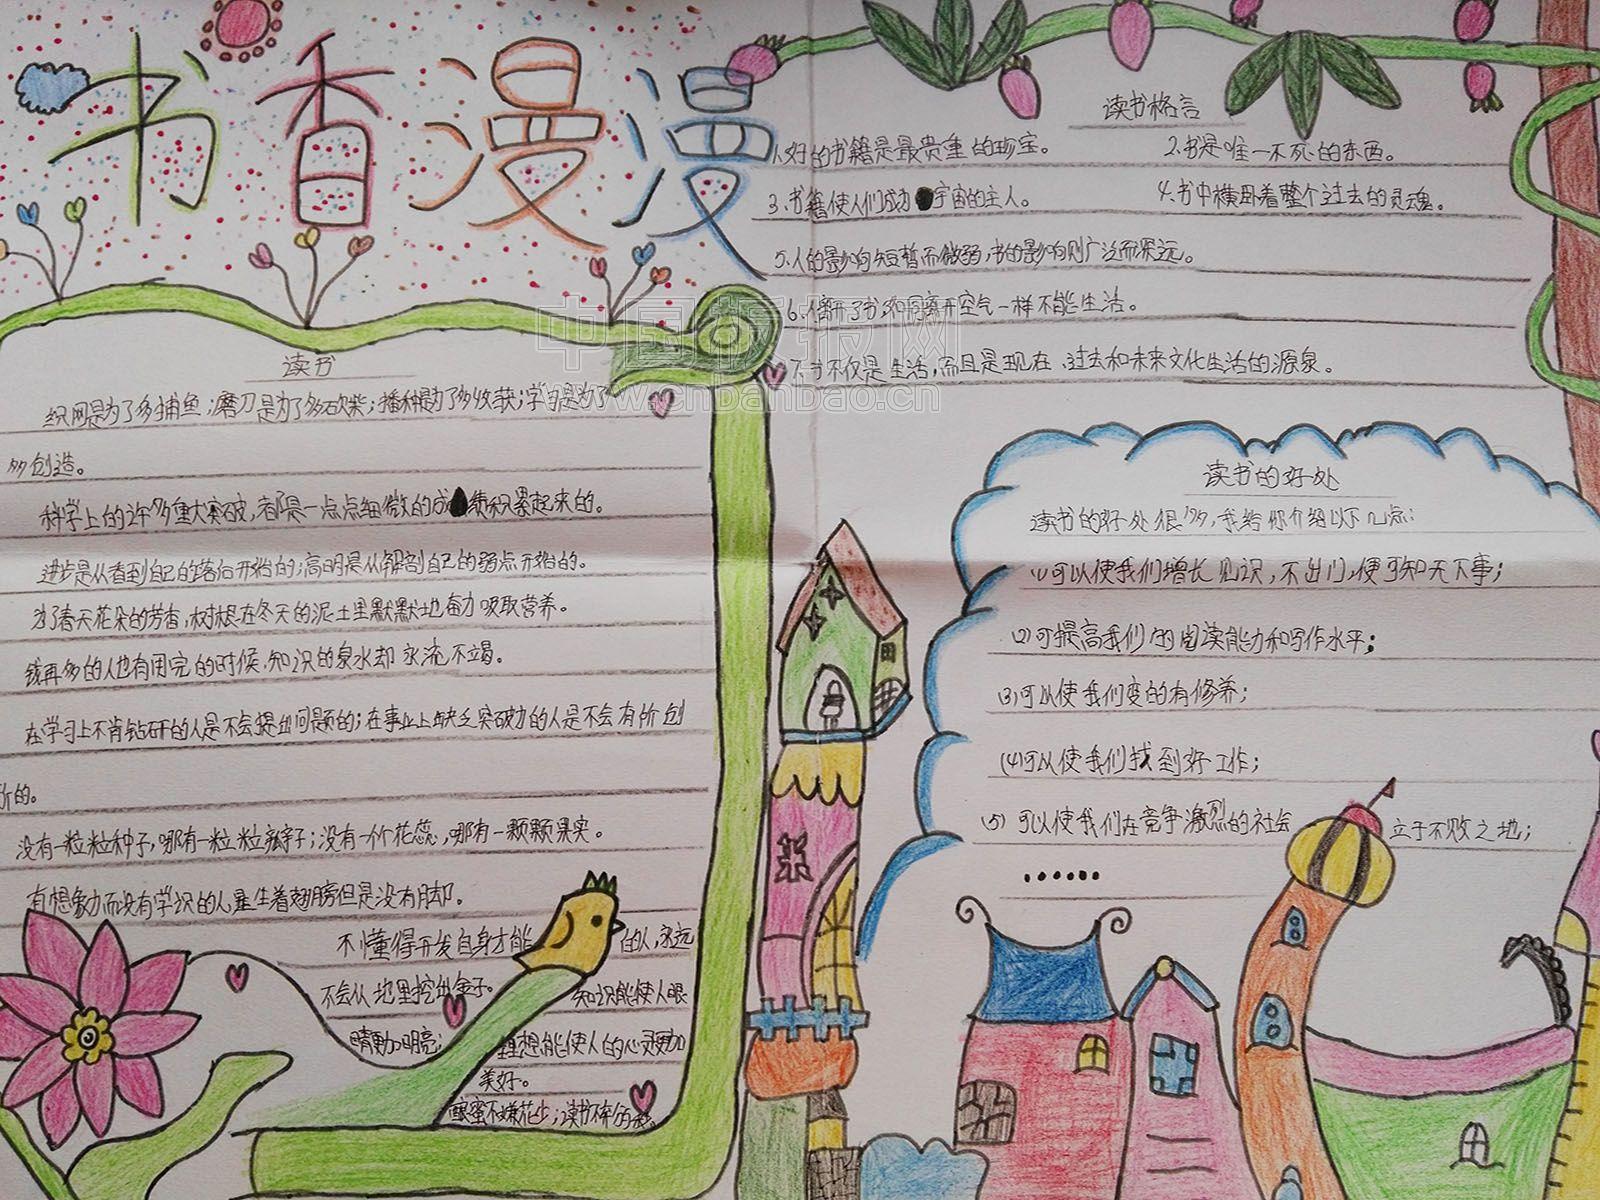 书香漫漫
读书
织网是为了多捕鱼;磨刀是为了多砍柴;播种是为了多收获;学习是为了
多创造。
科学上的许多重大突破,都是一点点细微的成绩积累起来的。
进步是从看到自己的落后开始的;高明是从解剖自己的弱点开始的。
为了春天花朵的芳香,树根在冬天的泥土里默默地奋力吸取营养。
钱再多的人也有用完的时候,知识的泉水却永流不竭。
在学习上不肯钻研的人是不会提出问题的;在事业上缺乏突破力的人是不会有所创
所的。
没有一粒粒种子,哪有一粒粒瓠子;没有一个个花蕊,哪有一颗颗果实。
有想象力而没有学识的人虽生着翅膀但是没有脚。
不懂得开发自身才能的人,永远
不会从地里挖出金子。知识能使人眼
睛更加明亮;理想能使人的心灵更加
美好。
酿蜜不嫌花少;读书不
读书格言
1.好的书籍是最贵重的珍宝。 2.书是唯一不死的东西。
3.书籍使人们成为宇宙的主人。 4.书中横卧着整个过去的灵魂。
5.人的影响短暂而微弱,书的影响则广泛而深远。
6.人离开了书,如同离开空气一样不能生活。
7.书不仅是生活,而且是现在、过去和未来文化生活的源泉。
读书的好处
读书的好处很多,我给你介绍以下几点:
(1)可以使我们增长见识,不出门,便可知天下事;
(2)可提高我们的阅读能力和写作水平;
(3)可以使我们变的有修养;
(4)可以使我们找到好工作;
(5)可以使我们在竞争激烈的社会立于不败之地;
……
中国板报网
www.wenbanbao.cn